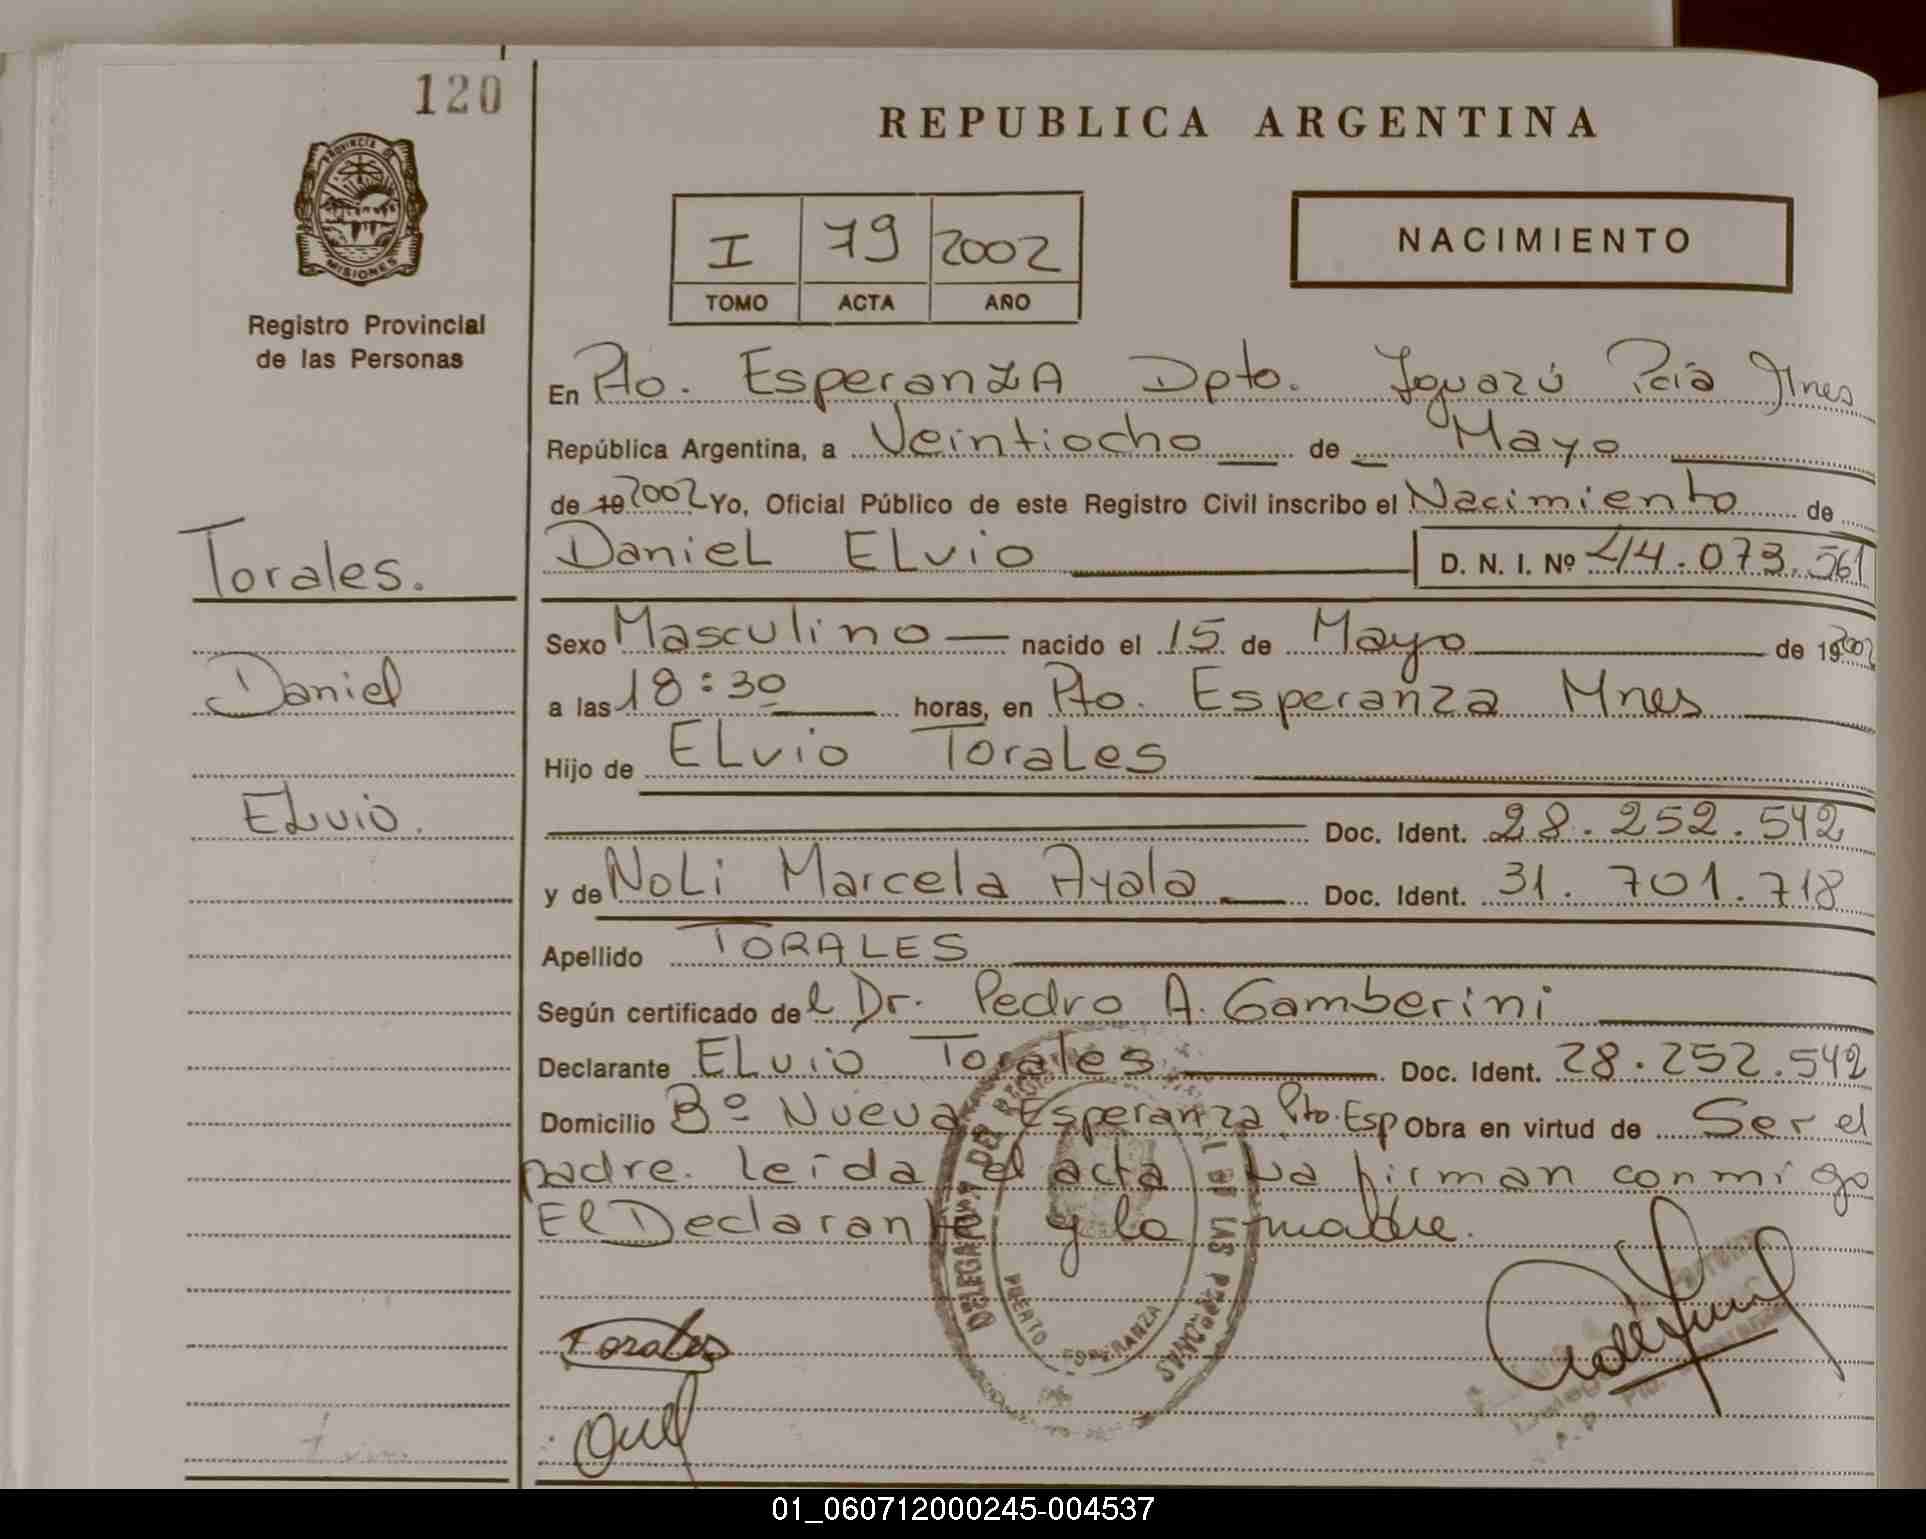 120
REPUBLICA ARGENTINA
PROVINCIA DE
MISIONES
Registro Provincial
de las Personas
I 79 2002
TOMO ACTA AÑO
NACIMIENTO
En Pto. Esperanza Dpto. Iguazú Pcia Mnes
República Argentina, a Veintiocho de Mayo
de 19 2002 Yo, Oficial Público de este Registro Civil inscribo el Nacimiento de
Torales.
Daniel Elvio D. N. I. Nº 44.073.561
Sexo Masculino nacido el 15 de Mayo de 19 2002
Daniel
a las 18:30 horas, en Pto. Esperanza Mnes
Hijo de Elvio Torales
Elvio.
Doc. Ident. 28.252.542
y de Noli Marcela Ayala Doc. Ident. 31.701.718
Apellido TORALES
Según certificado del Dr. Pedro A. Gamberini
Declarante Elvio Torales Doc. Ident. 28.252.542
Domicilio Bº Nueva Esperanza Pto. Esp Obra en virtud de Ser el
padre. leida el acta La firman conmigo
El Declarante y la madre.
DELEGACION DEL
DE LAS PERSONAS
PUERTO ESPERANZA
Torales
01_060712000245-004537